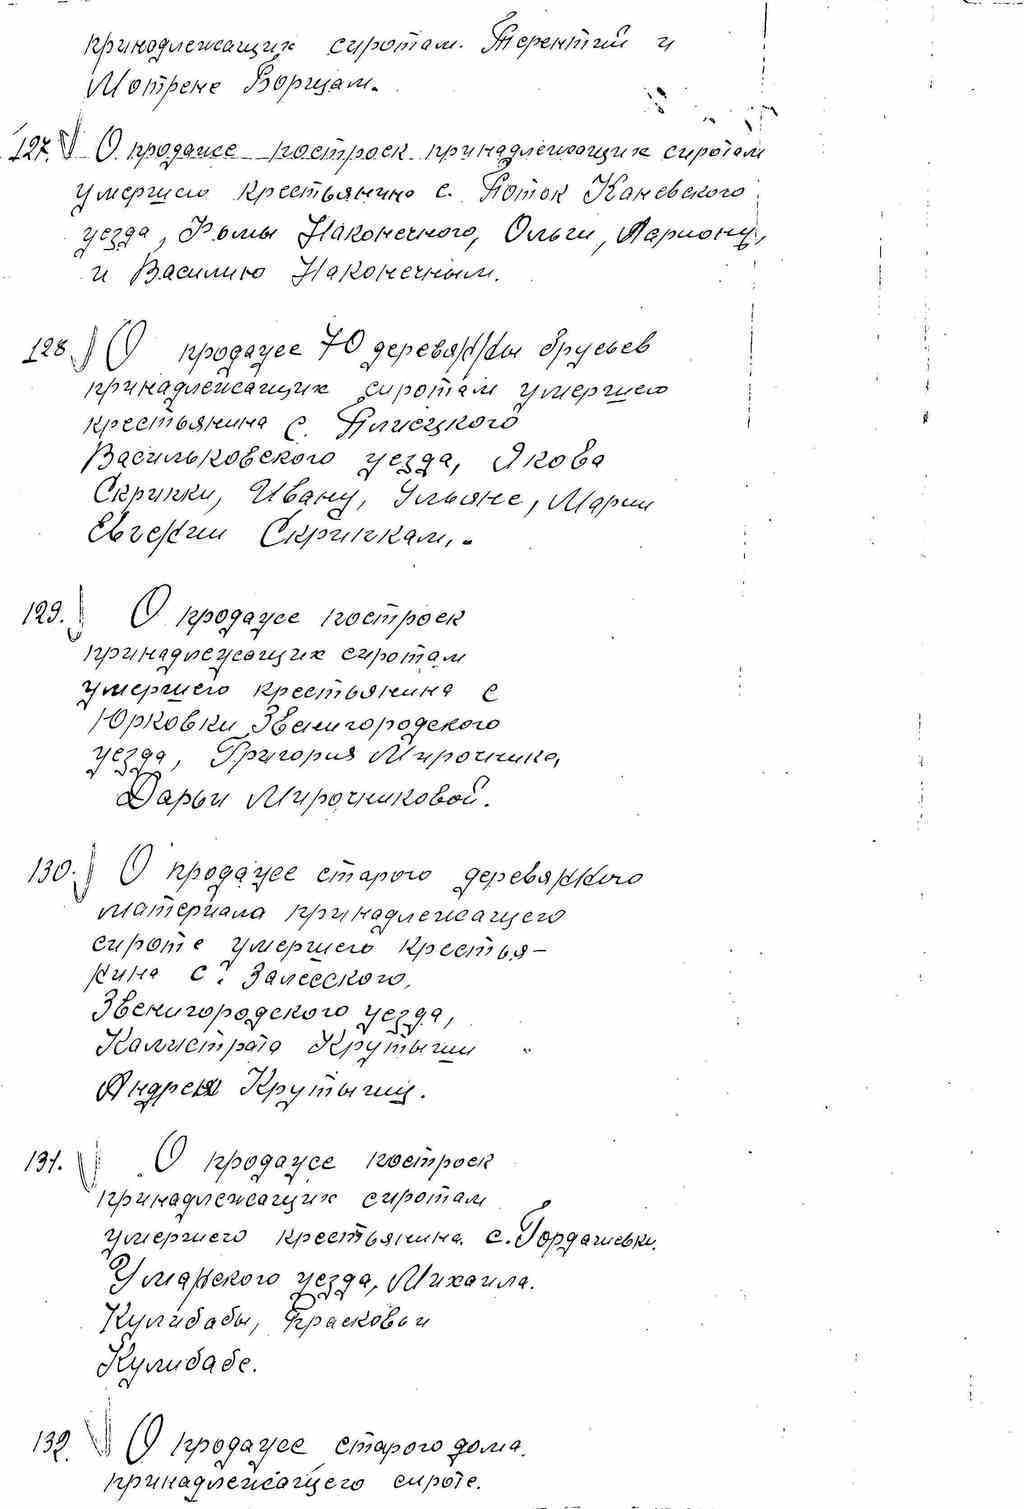 принадлежащих сиротам. Терентий и
Мотрене Борщам.
127. О продаже построек принадлежащих сиротам
умершего крестьянина с. Поток Каневского
уезда, Фомы Наконечного, Ольги, Лариону,
и Василию Наконечным.
128. О продаже 70 деревянны брусьев
принадлежащих сиротам умершего
крестьянина с. Плисецкого
Васильковского уезда, Якова
Скрипки, Ивану, Ульяне, Марии
Евгении Скрипкам.
129. О продаже построек
принадлежащих сиротам
умершего крестьянина с
Юрковки Звенигородского
уезда, Григория Мирочника,
Дарьи Мирочниковой.
130. О продаже старого деревянного
материала принадлежащего
сироте умершего крестья-
нина с. Залесского,
Звенигородского уезда,
Калистрата Крутыгии
Андрея Крутыгиц.
131. О продаже построек
принадлежащих сиротам
умершего крестьянина с. Гордашевки,
Уманского уезда, Михаила
Кулибабы, Прасковьи
Кулибабе.
132. О продаже старого дома
принадлежащего сироте.